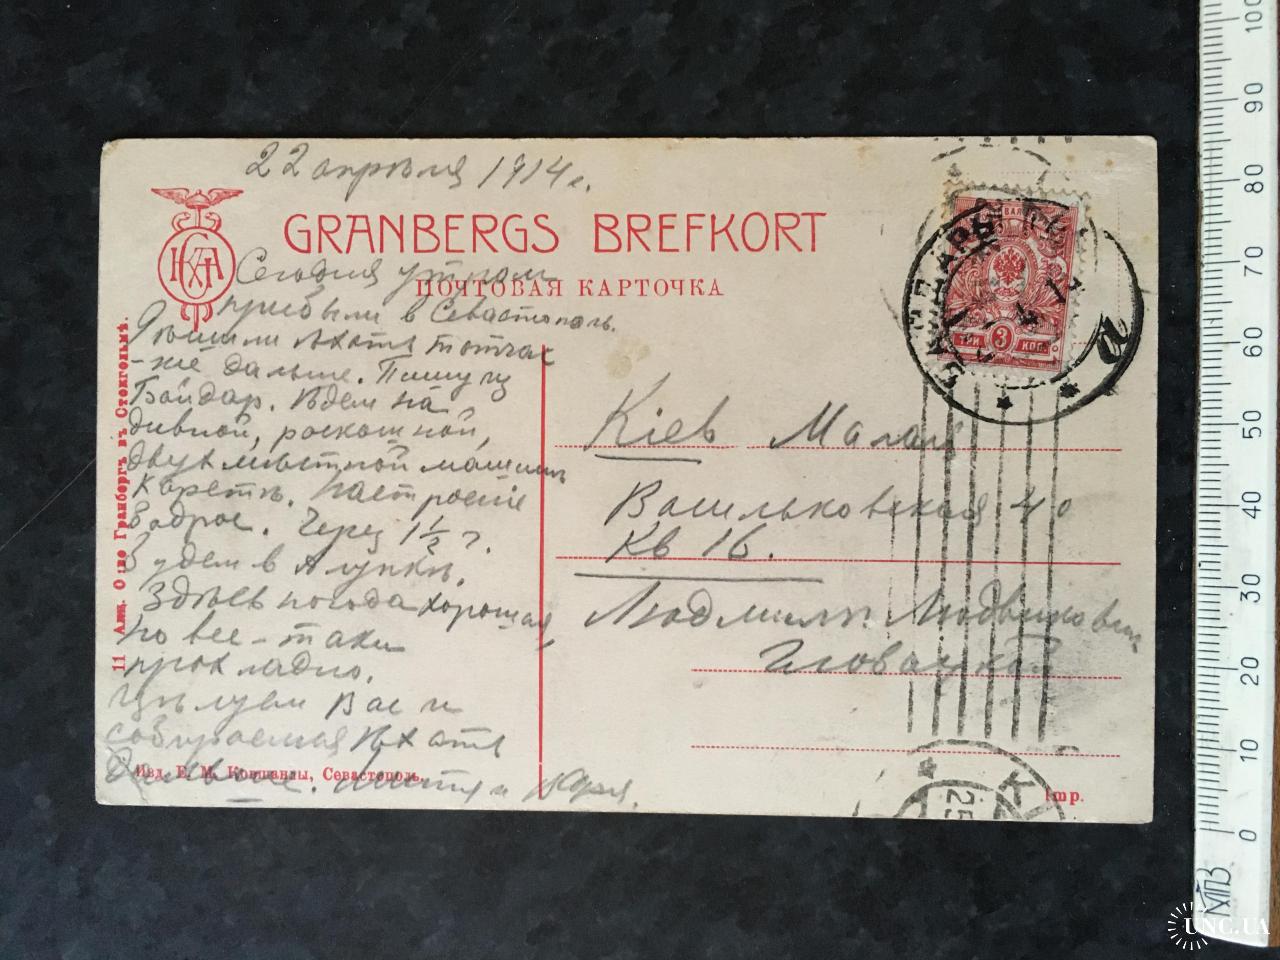 22 апрѣля 1914 г.
GRANBERGS BREFKORT
ПОЧТОВАЯ КАРТОЧКА
Сегодня утром
прибыли в Севастополь.
Рѣшили ѣхать тотчас
-же дальше. Пишу из
Байдар. ѣдем на
дивной, роскошной,
двухмѣстной машинѣ
каретѣ. Настроеніе
бодрое. Через 1½ г.
будем в Алупкѣ.
Здѣсь погода хорошая,
но все-таки
прохладно.
Цѣлуем Вас и
собираемся ѣхать
дальше. и
11 Акц. О-во Гранбергъ въ Стокгольмѣ.
Изд. Е. М. Ковшанлы, Севастополь.
Кіев Малая
Васильковская 40
кв 16.
Людмилѣ Людвиковнѣ
Гловацкой
БАЙДАРЫ
а
ТРИ 3 КОП.
25
Imp.
0 10 20 30 40 50 60 70 80 90 100
МПЗ
UNC.UA